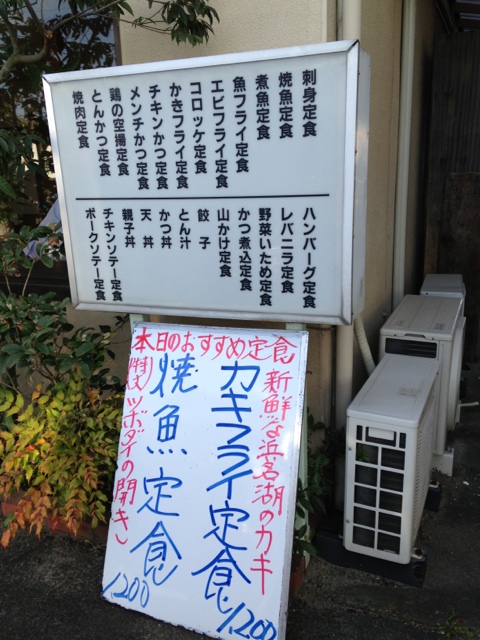 刺身定食
焼魚定食
煮魚定食
魚フライ定食
エビフライ定食
コロッケ定食
かきフライ定食
チキンかつ定食
メンチかつ定食
鶏の空揚定食
とんかつ定食
焼肉定食
ハンバーグ定食
レバニラ定食
野菜いため定食
かつ煮込定食
山かけ定食
餃子
とん汁
かつ丼
天丼
親子丼
チキンソテー定食
ポークソテー定食
本日のおすすめ定食
新鮮な浜名湖のカキ
カキフライ定食
1,200
焼魚定食
1,200
(特大)ツボダイの開き